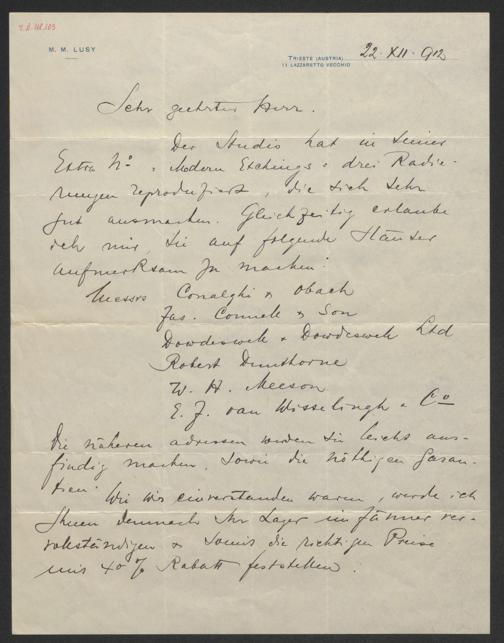 M. M. LUSY
TRIESTE (AUSTRIA)
11 LAZZARETTO VECCHIO
22·XII·912
Sehr geehrter Herr.
Der Studio hat in seiner
Extra No. "Modern Etchings" drei Radie-
rungen reproduziert, die sich sehr
gut ausmachen. Gleichzeitig erlaube
ich mir, Sie auf folgende Häuser
aufmerksam zu machen:
Messrs Conalghi & Obach
Jas. Connell & Son
Dowdeswell & Dowdeswell Ltd
Robert Dunthorne
W. H. Meeson
E. J. van Wisselingh & Co
Die näheren adressen werden Sie leicht aus-
findig machen, sowie die nöthigen Garan-
tien. Wie wir einverstanden waren, werde ich
Ihnen demnach Ihr Lager im Jänner ver-
vollständigen & somit die richtigen Preise
mit 40% Rabatt feststellen.